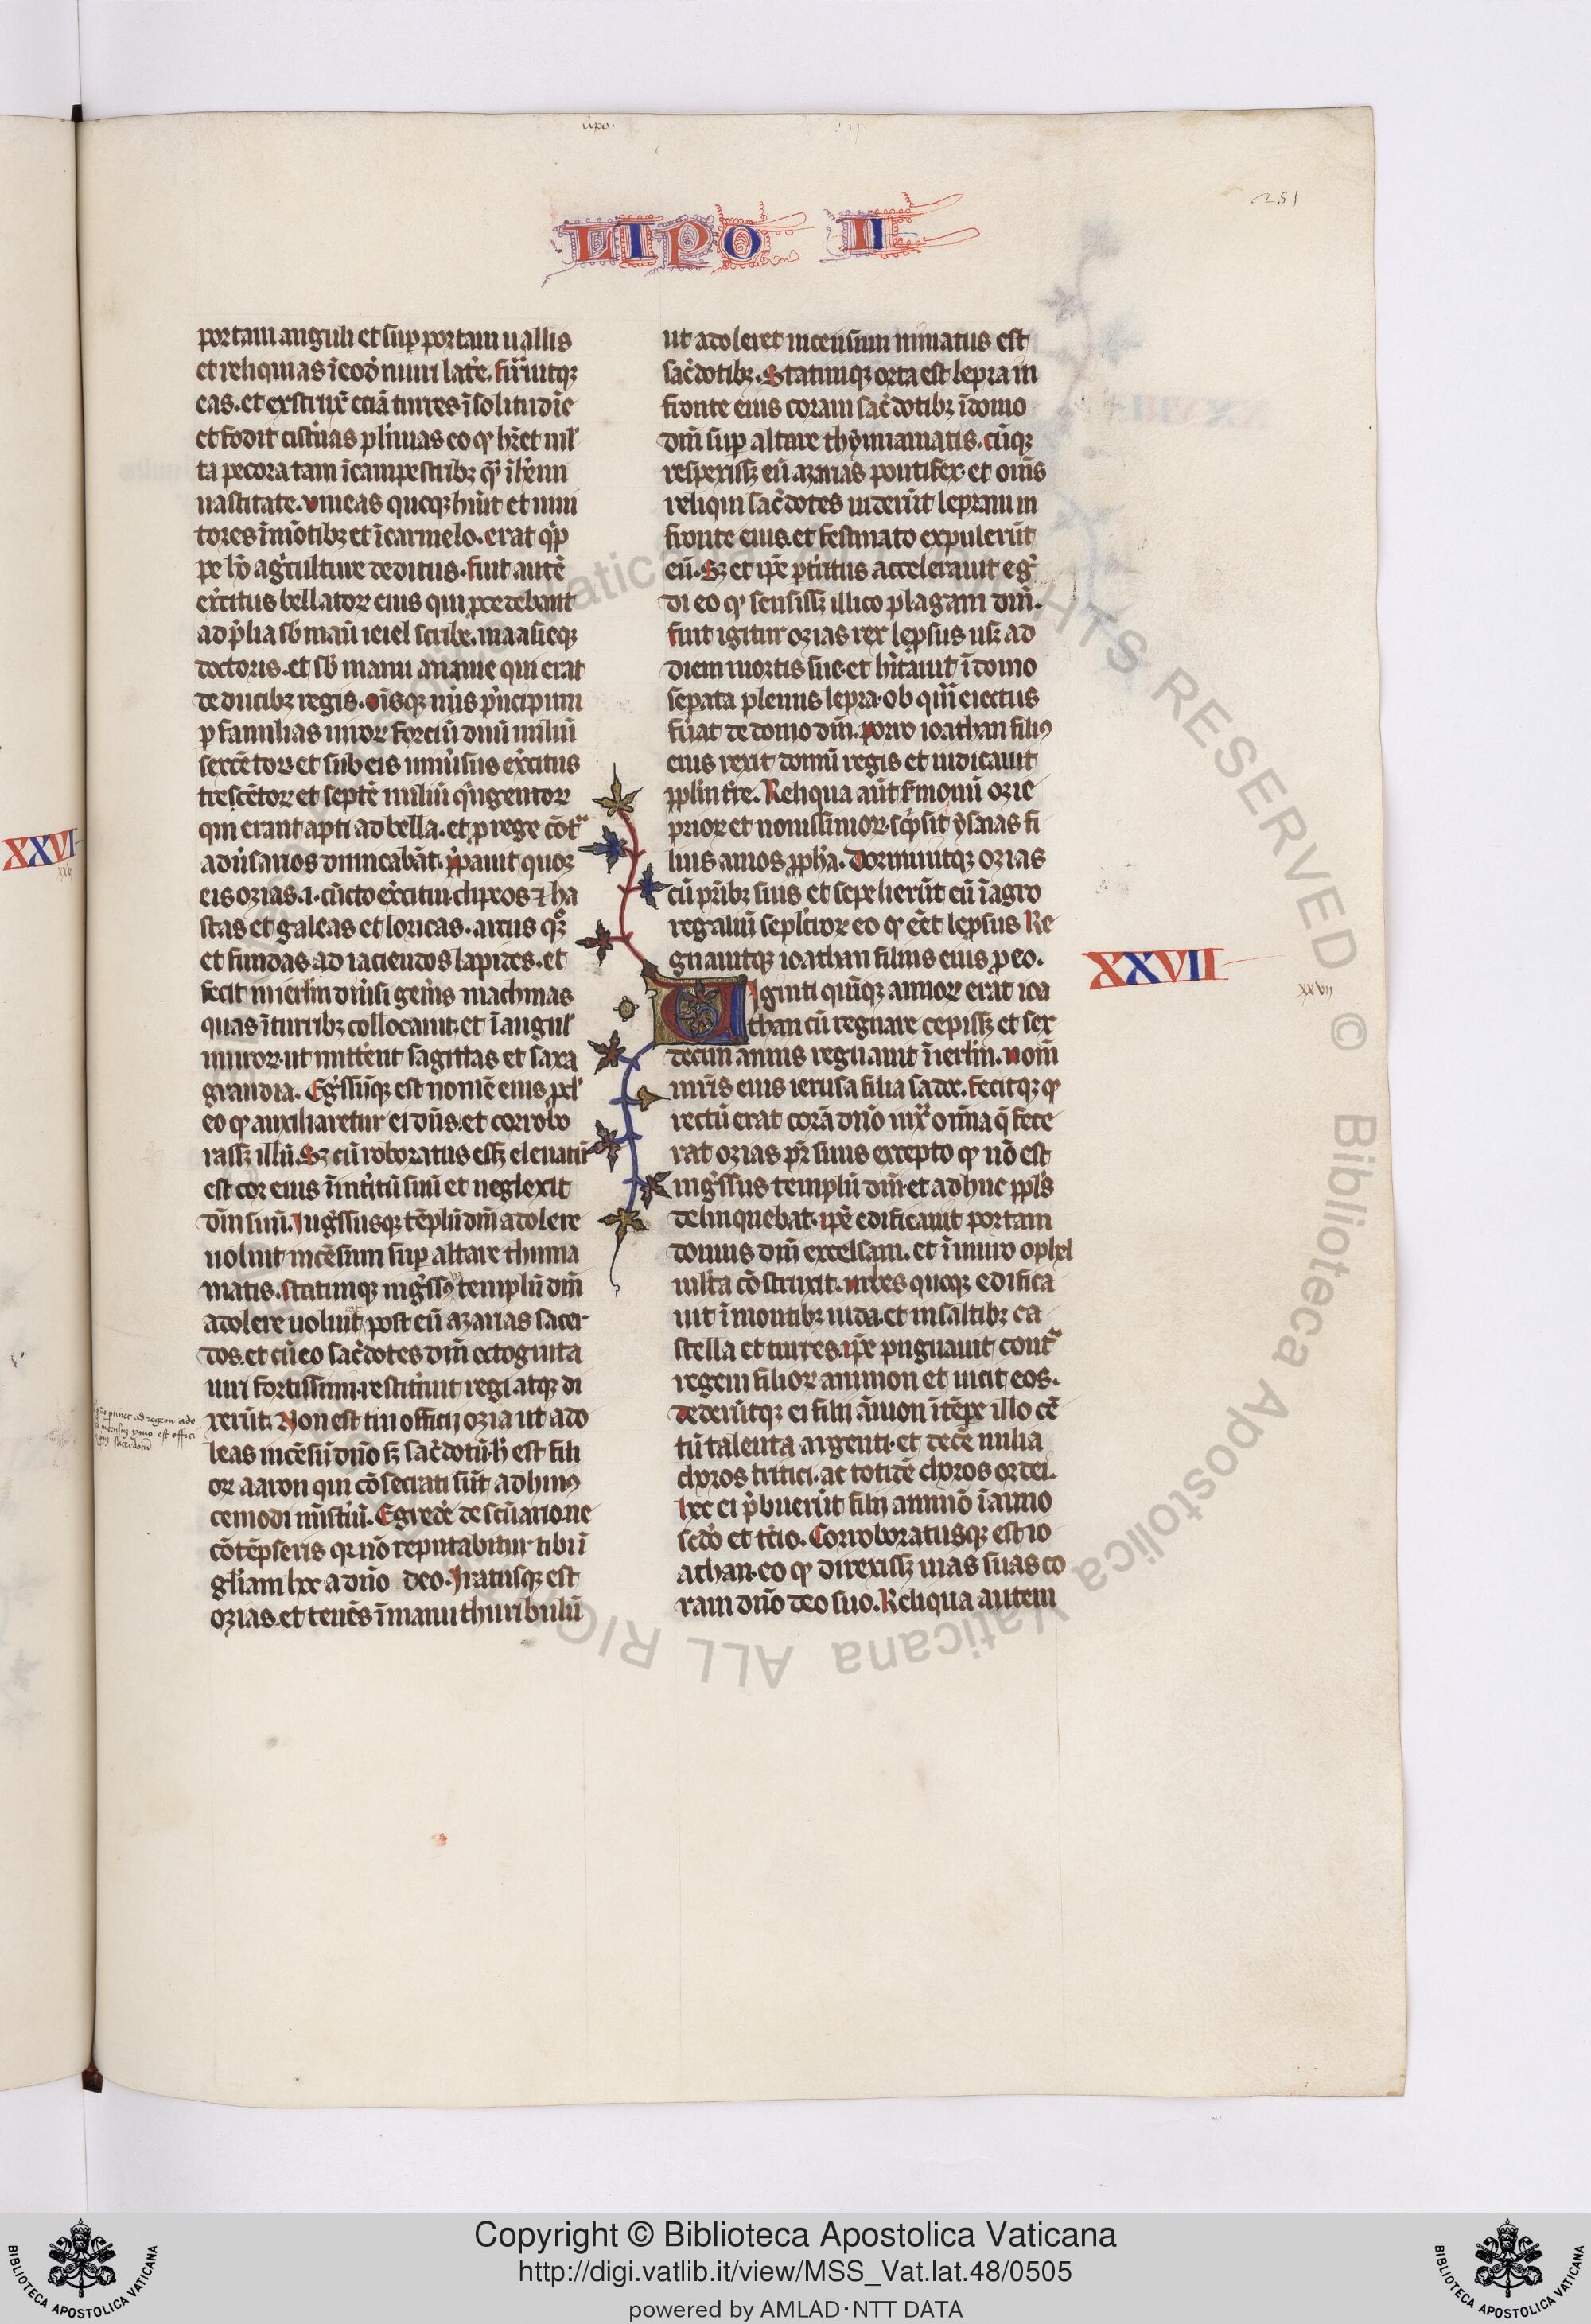 LIPO II
251
portam anguli et sup portam uallis
et reliquias ī eod̄ muri lat̾e. firmuitqꝫ
eas. et exstrux̄ eciā turres ī solitudīe
et fodit cist̾nas plimas eo ꝙ hr̄et ml̾
ta pecora tam ī campestribꝫ q̄ ī h̾emi
uastitate. vineas quoqꝫ huit et uini
tores ī mōtibꝫ et ī carmelo. erat q̄p
pe hō ag̾culture deditus. fuit autē
ex̾citus bellatoꝝ eius qui ꝓcedebant
ad p̄lia sb̾ manu ieiel scribe. maasieqꝫ
doctoris. et sb̾ manu ananie qui erat
de ducibꝫ regis. oīsqꝫ nūs p̾ncipum
p familias uiroꝝ forciū duū miliū
sexcētoꝝ et sub eis uniu̾sus ex̾citus
trescētoꝝ et septē miliū q̾ngentoꝝ
qui erant apti ad bella. et ꝓ rege cōtᵃ
adu̾sarios dimicabāt. p̄pauit quoqꝫ
eis ozias. i. cūcto ex̾citui. clipeos ⁊ ha
stas et galeas et loricas. arcus qꝫ
et fundas ad iaciendos lapides. et
fecit in ierl̄m diu̾si gen̾is machinas
quas ī turribꝫ collocauit. et ī angul̾
muroꝝ. ut mitt̾ent sagittas et saxa
grandia. Eg̾ssūqꝫ est nomē eius pcl̾
eo ꝙ auxiliaretur ei dn̄s. et corrobo
rassꝫ illū. Sꝫ cū roboratus essꝫ eleuatū
est cor eius ī int̾itū suū et neglexit
dn̄m suū. Ing̾ssusqꝫ tēplū dn̄i adolere
uoluit incēsum sup altare thimia
matis. statimqꝫ ing̾ssꝰ templū dn̄i
adolere uoluit post eū azarias sacer
dos. et cū eo sac̾dotes dn̄i octoginta
uiri fortissimi. restit̾unt regi atqꝫ di
xerūt. Non est tui officij ozia ut ado
leas incēsū dn̄o sꝫ sac̾dotū. h̾ est fili
oꝝ aaron qui cōsecrati sūt ad huiꝰ
cemodi mīst̾iū. Egrede̾ de scūario. ne
cōtēpseris qꝛ nō reputabitur tibi ī
gl̄iam hec a dn̄o deo. Iratusqꝫ est
ozias. et tenēs ī manu thuribulū
ut adoleret incensum minatus est
sac̾dotibꝫ. Statimqꝫ orta est lepra in
fronte eius coram sac̾dotibꝫ ī domo
dn̄i sup altare thymiamatis. cūqꝫ
respexissꝫ eū azarias pontifex. et om̄s
reliqui sac̾dotes uiderūt lepram in
fronte eius. et festinato expulerūt
eū. Sꝫ et ip̄e pt̾ritus accelerauit eg̾
di eo ꝙ sensissꝫ illico plagam dn̄i.
fuit igitur ozias rex lepsus usꝫ ad
diem mortis sue. et hītauit ī domo
sepata plenus lepra. ob quā eiectus
fu̾at de domo dn̄i. porro ioathan filiꝰ
eius rexit domū regis et iudicauit
pplm̄ tr̄e. Reliqua aūt s̾monū ozie
prioꝝ et nouissimoꝝ. sc̾psit ysaias fi
lius amos pph̄a. dormiuitqꝫ ozias
cū pr̄ibꝫ suis et sepelierūt eū ī agro
regaliū sepl̾croꝝ eo ꝙ eēt lepsus Re
gnauitqꝫ ioathan filius eius ꝓ eo.
Viginti quīqꝫ annoꝝ erat ioa
than cū regnare cepissꝫ et sex
decim annis regnauit ī ierl̄m. nom̄
mr̄is eius ierusa filia sadoc. fecitqꝫ ꝙ
rectū erat corā dn̄o iuxᵃ omīa q̄ fece
rat ozias pr̄ suus excepto ꝙ nō est
ing̾ssus templū dn̄i. et adhuc ppl̄s
delinquebat. ip̄e edificauit portam
domus dn̄i excelsam. et ī muro ophel
multa cōstruxit. urbes quoqꝫ edifica
uit ī montibꝫ iuda. et in saltibꝫ ca
stella et turres. ip̄e pugnauit contᵃ
regem filioꝝ ammon et uicit eos.
dederūtqꝫ ei filij āmon ī tēpe illo cē
tū talenta argenti. et decē milia
choros tritici. ac totidē choros ordei.
hec ei p̾buerūt filij ammō ī anno
sc̄do et t̾cio. Corroboratusqꝫ est io
athan. eo ꝙ direxissꝫ uias suas co
ram dn̄o deo suo. Reliqua autem
XXVI
XXVII
xxvii
Copyright © Biblioteca Apostolica Vaticana
http://digi.vatlib.it/view/MSS_Vat.lat.48/0505
powered by AMLAD·NTT DATA
BIBLIOTECA APOSTOLICA VATICANA
BIBLIOTECA APOSTOLICA VATICANA